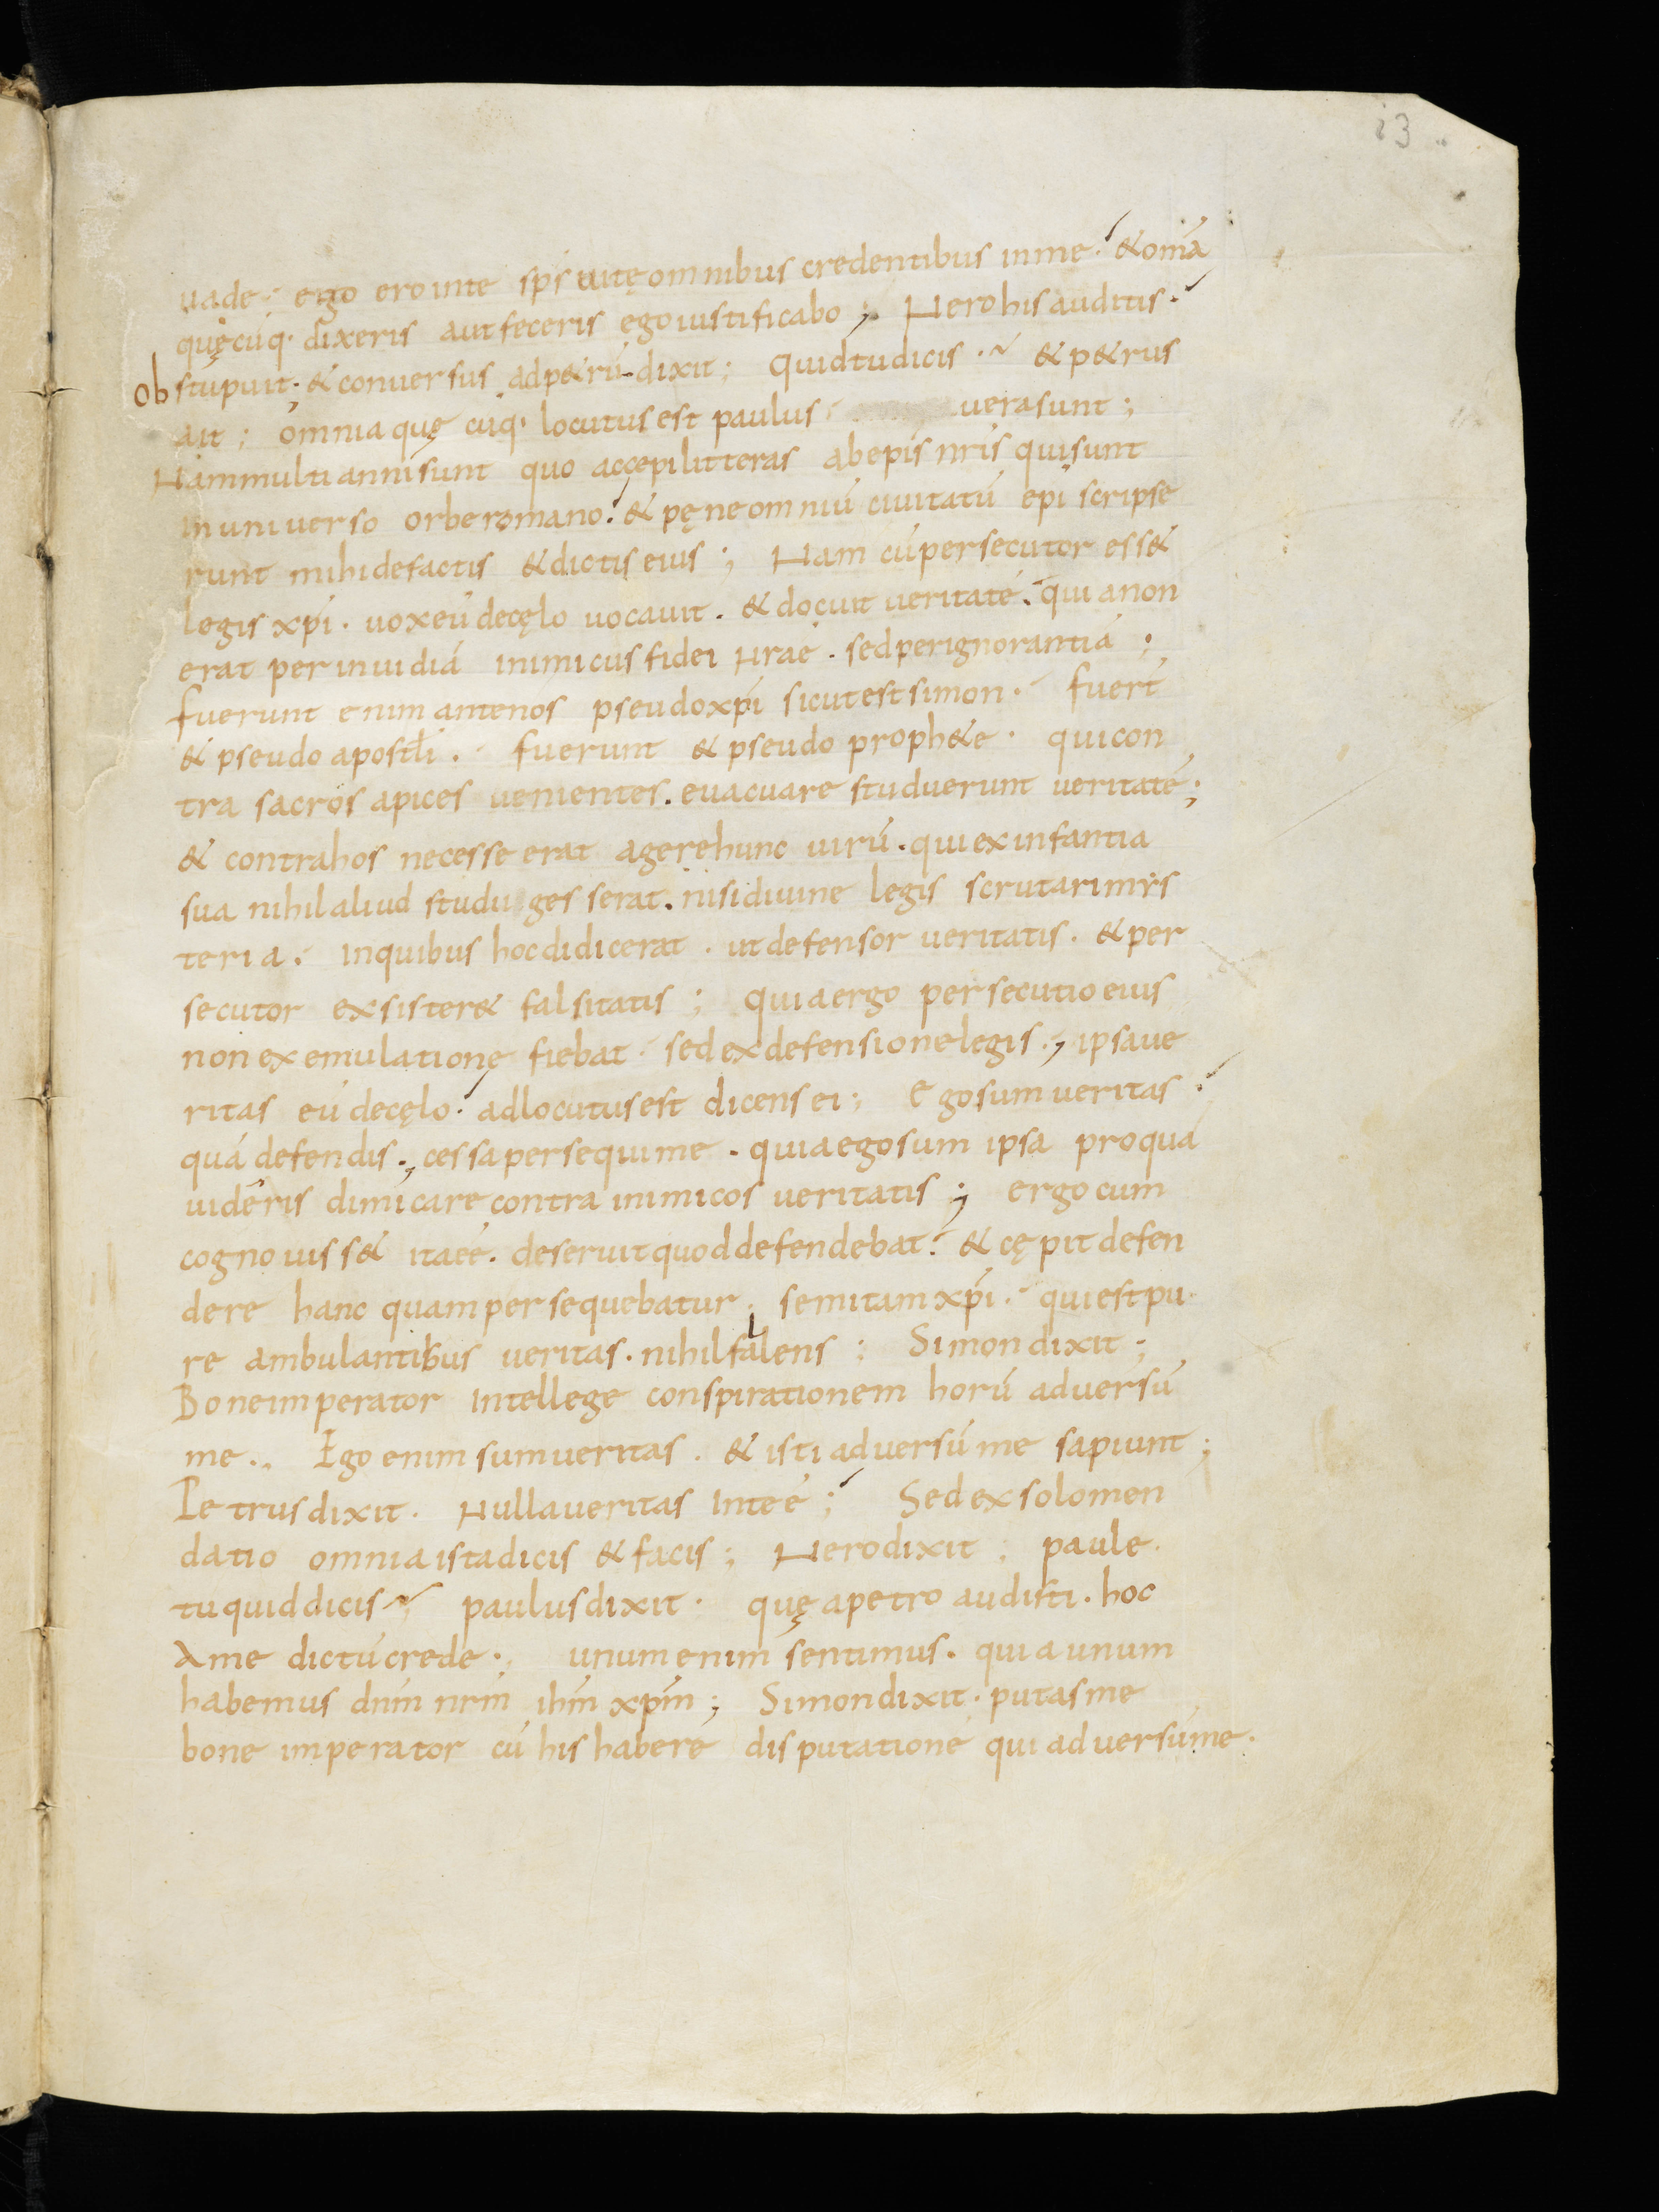 i3
uade ; ego ero in te sp̄s uitę omnibus credentibus in me . & om̄a
quęcūq· dixeris aut feceris ego iustificabo ; Nero his auditis .
Obstupuit ; & conuersus ad p&rū dixit ; Quid tu dicis . & p&rus
ait ; omnia quęcūq· locutus est paulus uera sunt ;
Nam multi anni sunt quo accepi litteras ab ep̄is nr̄is qui sunt
in uniuerso orbe romano . & pęne omniū ciuitatū ep̄i scripse
runt mihi de factis & dictis eius ; Nam cū persecutor ess&
legis xp̄i . uox eū de cęlo uocauit . & docuit ueritatē . quia non
erat per inuidiā inimicus fidei n̄rae . sed per ignorantiā ;
fuerunt enim ante nos pseudoxp̄i sicut est simon . fuer̄t
& pseudo apostłi . fuerunt & pseudo proph&e . qui con
tra sacros apices uenientes . euacuare studuerunt ueritatē ;
& contra hos necesse erat agere hunc uirū . qui ex infantia
sua nihil aliud studii gesserat . nisi diuine legis scrutari mys
teria . in quibus hoc didicerat . ut defensor ueritatis . & per
secutor exsister& falsitatis ; quia ergo persecutio eius
non ex emulatione fiebat . sed ex defensione legis ., ipsa ue
ritas eū de cęlo . adlocutus est dicens ei ; Ego sum ueritas
quā defendis ., cessa persequi me . quia ego sum ipsa pro quā
uideris dimicare contra inimicos ueritatis ; ergo cum
cognouiss& ita eē . deseruit quod defendebat . & cępit defen
dere hanc quam persequebatur . semitam xp̄i . qui est pu
re ambulantibus ueritas . nihil fallens ; Simon dixit ;
Bone imperator intellege conspirationem horū aduersū
me ., Ego enim sum ueritas . & isti aduersū me sapiunt ;
Petrus dixit . Nulla ueritas in te ē ; Sed ex solo men
datio omnia ista dicis & facis ; Nero dixit ; paule .
tu quid dicis paulus dixit . quę a petro audisti . hoc
A me dictū crede ., unum enim sentimus . quia unum
habemus dn̄m nr̄m ih̄m xp̄m ; Simon dixit . putas me
bone imperator cū his habere disputationē qui aduersū me .